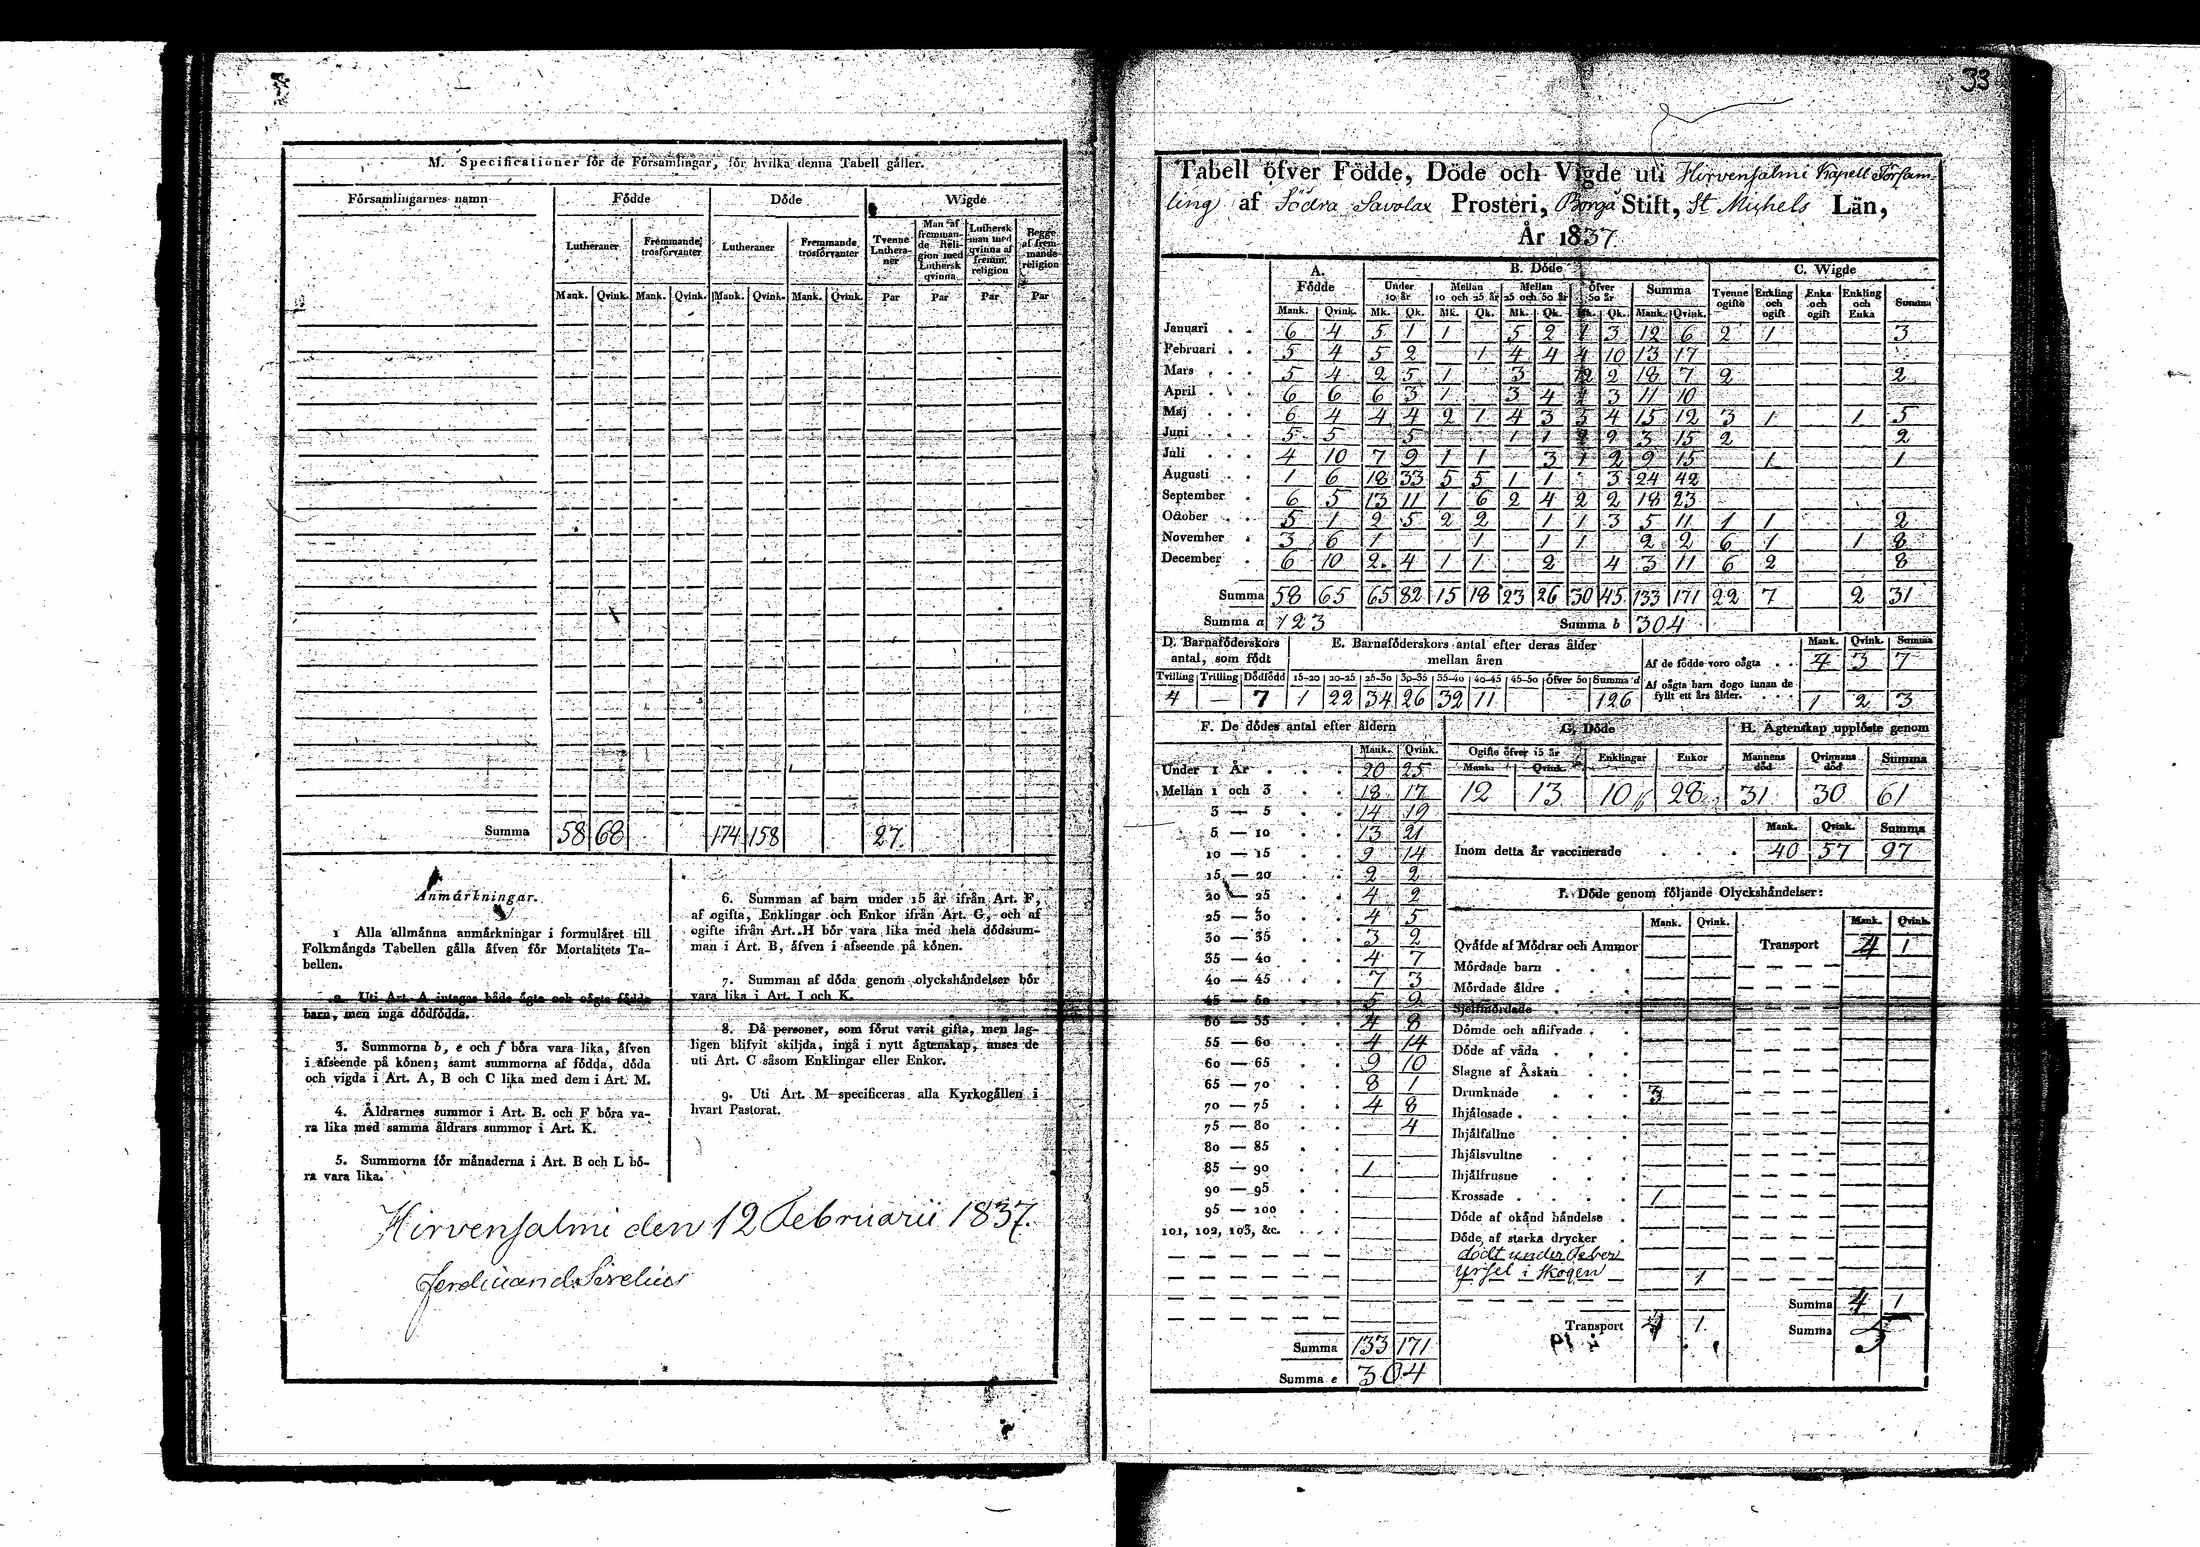 33
M. Specificationer för de Församlingar, för hvilka denna Tabell gäller.
Församlingarnes namn | Födde | Döde | Wigde
Lutheraner | Fremmande trosförvanter | Lutheraner | Fremmande trosförvanter | Tvenne Lutheraner | Man af fremmande Religion med Luthersk qvinna | Luthersk man med qvinna af fremm. religion | Begge af fremmande religion
Mank. | Qvink. | Mank. | Qvink. | Mank. | Qvink. | Mank. | Qvink. | Par | Par | Par | Par
Summa | 58 | 68 | | | 174 | 158 | | | 27
Anmärkningar.
1 Alla allmänna anmärkningar i formuläret till
Folkmängds Tabellen gälla äfven för Mortalitets Ta-
bellen.
2. Uti Art. A intagas både ägta och oägta födde
barn, men inga dödfödda.
3. Summorna b, e och f böra vara lika, äfven
i afseende på könen; samt summorna af födda, döda
och vigda i Art. A, B och C lika med dem i Art. M.
4. Åldrarnes summor i Art. B. och F böra va-
ra lika med samma åldrars summor i Art. K.
5. Summorna för månaderna i Art. B och L bö-
ra vara lika.
6. Summan af barn under 15 år ifrån Art. F,
af ogifta, Enklingar och Enkor ifrån Art. G, och af
ogifte ifrån Art. H bör vara lika med hela dödssum-
man i Art. B, äfven i afseende på könen.
7. Summan af döda genom olyckshändelser bör
vara lika i Art. I och K.
8. Då personer, som förut varit gifta, men lag-
ligen blifvit skiljda, ingå i nytt ägtenskap, anses de
uti Art. C såsom Enklingar eller Enkor.
9. Uti Art. M specificeras alla Kyrkogällen i
hvart Pastorat.
Hirvensalmi den 12 Februarii 1837.
Ferdinand Sirelius
Tabell öfver Födde, Döde och Vigde uti Hirvensalmi Kapell Försam-
ling af Södra Savolax Prosteri, Borgå Stift, St Michels Län,
År 1837
A. Födde | B. Döde | C. Wigde
Under 10 år | Mellan 10 och 25 år | Mellan 25 och 50 år | Öfver 50 år | Summa | Tvenne ogifte | Enkling och ogift | Enka och ogift | Enkling och Enka | Summa
Mank. | Qvink. | Mk. | Qk. | Mk. | Qk. | Mk. | Qk. | Mk. | Qk. | Mank. | Qvink.
Januari | 6 | 4 | 5 | 1 | 1 | | 5 | 2 | 1 | 3 | 12 | 6 | 2 | 1 | | | 3
Februari | 5 | 4 | 5 | 2 | | 1 | 4 | 4 | 4 | 10 | 13 | 17
Mars | 5 | 4 | 2 | 5 | 1 | | 3 | | 12 | 2 | 18 | 7 | 2 | | | | 2
April | 6 | 6 | 6 | 3 | 1 | | 3 | 4 | | 3 | 11 | 10
Maj | 6 | 4 | 4 | 4 | 2 | 1 | 4 | 3 | | 4 | 15 | 12 | 3 | 1 | | 1 | 5
Juni | 5 | 5 | | 5 | | | 1 | 1 | 2 | 9 | 3 | 15 | 2 | | | | 2
Juli | 4 | 10 | 7 | 9 | 1 | 1 | | 3 | 1 | 2 | 9 | 15 | | 1 | | | 1
Augusti | 1 | 6 | 18 | 33 | 5 | 5 | 1 | 1 | | 3 | 24 | 42
September | 6 | 5 | 13 | 11 | 1 | 6 | 2 | 4 | 2 | 2 | 18 | 23
October | 5 | 1 | 2 | 5 | 2 | 2 | | 1 | 1 | 3 | 5 | 11 | 1 | 1 | | | 2
November | 3 | 6 | 1 | | | 1 | | 1 | 1 | | 2 | 2 | 6 | 1 | | 1 | 8
December | 6 | 10 | 2 | 4 | 1 | 1 | | 2 | | 4 | 3 | 11 | 6 | 2 | | | 8
Summa | 58 | 65 | 65 | 82 | 15 | 18 | 23 | 26 | 30 | 45 | 133 | 171 | 22 | 7 | | 2 | 31
Summa a | 123 | Summa b | 304
D. Barnaföderskors antal, som födt | E. Barnaföderskors antal efter deras ålder mellan åren | Mank. | Qvink. | Summa
Af de födde voro oägta | 4 | 3 | 7
Tvilling | Trilling | Dödfödd | 15-20 | 20-25 | 25-30 | 30-35 | 35-40 | 40-45 | 45-50 | Öfver 50 | Summa d
4 | — | 7 | 1 | 22 | 34 | 26 | 32 | 11 | | | 126
Af oägta barn dogo innan de fyllt ett års ålder. | 1 | 2 | 3
F. De dödes antal efter åldern
Mank. | Qvink.
Under 1 År | 20 | 25
Mellan 1 och 3 | 18 | 17
3 — 5 | 14 | 19
5 — 10 | 13 | 21
10 — 15 | 9 | 14
15 — 20 | 2 | 2
20 — 25 | 4 | 2
25 — 30 | 4 | 5
30 — 35 | 3 | 2
35 — 40 | 4 | 7
40 — 45 | 7 | 3
45 — 50 | 5 | 9
50 — 55 | 4 | 8
55 — 60 | 4 | 14
60 — 65 | 9 | 10
65 — 70 | 8 | 1
70 — 75 | 4 | 8
75 — 80 | | 4
80 — 85
85 — 90 | 1
90 — 95
95 — 100
101, 102, 103, &c.
Summa | 133 | 171
Summa e | 304
G. Döde | H. Ägtenskap upplöste genom
Ogifte öfver 15 år | Enklingar | Enkor | Mannens död | Qvinnans död | Summa
Mank. | Qvink.
12 | 13 | 10 | 28 | 31 | 30 | 61
Mank. | Qvink. | Summa
Inom detta år vaccinerade | 40 | 57 | 97
I. Döde genom följande Olyckshändelser:
Mank. | Qvink. | Mank. | Qvink.
Qväfde af Mödrar och Ammor | Transport | 4 | 1
Mördade barn
Mördade äldre
Sjelfmördade
Dömde och aflifvade
Döde af våda
Slagne af Åskan
Drunknade | 3
Ihjälosade
Ihjälfallne
Ihjälsvultne
Ihjälfrusne
Krossade | 1
Döde af okänd händelse
Döde af starka drycker
dödt under Feber
yrsel i skogen | | 1
Summa | 4 | 1
Transport | 4 | 1 | Summa | 5